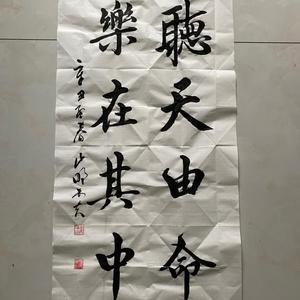 聽天由命
樂在其中
辛丑